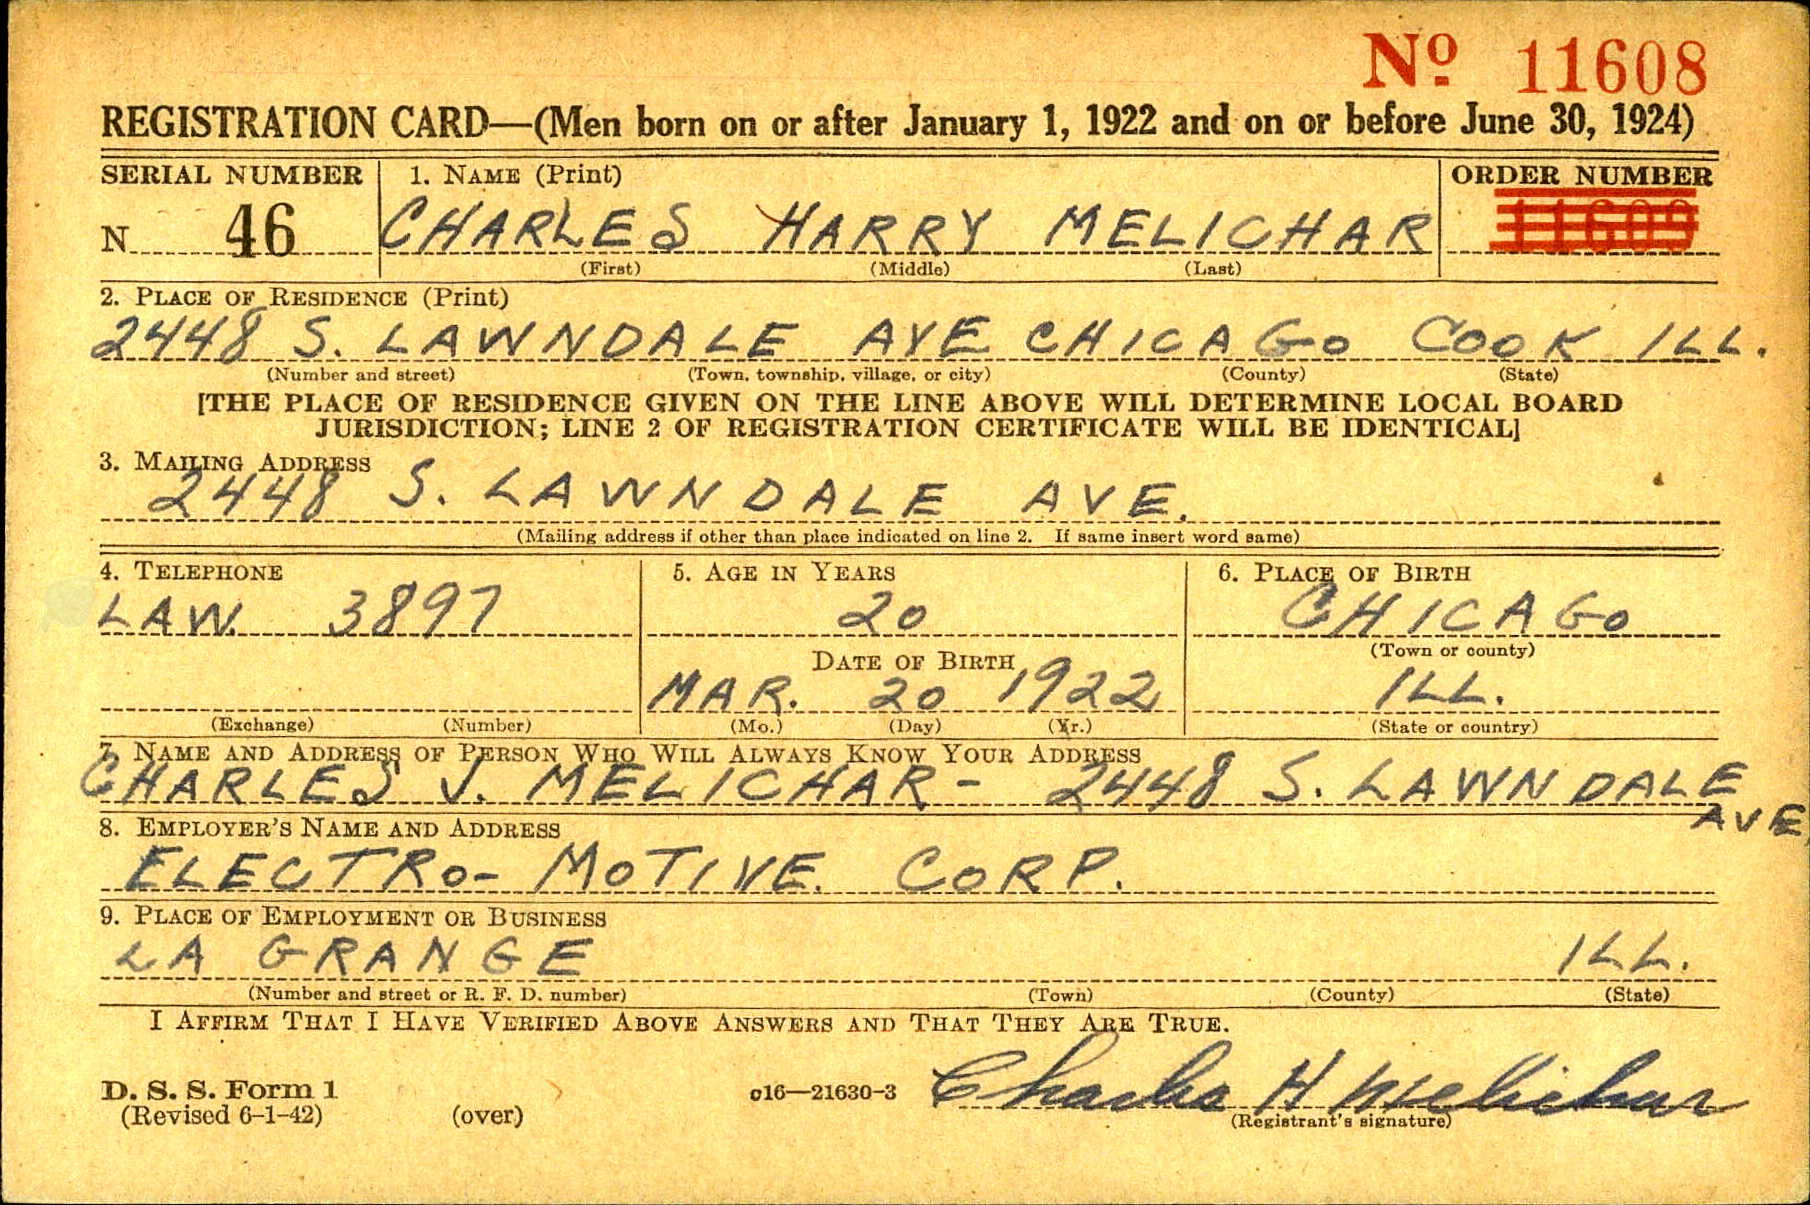 Nº 11608
REGISTRATION CARD—(Men born on or after January 1, 1922 and on or before June 30, 1924)
SERIAL NUMBER
N 46
1. NAME (Print)
CHARLES HARRY MELICHAR
(First) (Middle) (Last)
ORDER NUMBER
11609
2. PLACE OF RESIDENCE (Print)
2448 S. LAWNDALE AVE CHICAGO COOK ILL.
(Number and street) (Town, township, village, or city) (County) (State)
[THE PLACE OF RESIDENCE GIVEN ON THE LINE ABOVE WILL DETERMINE LOCAL BOARD
JURISDICTION; LINE 2 OF REGISTRATION CERTIFICATE WILL BE IDENTICAL]
3. MAILING ADDRESS
2448 S. LAWNDALE AVE.
(Mailing address if other than place indicated on line 2. If same insert word same)
4. TELEPHONE
LAW. 3897
(Exchange) (Number)
5. AGE IN YEARS
20
DATE OF BIRTH
MAR. 20 1922
(Mo.) (Day) (Yr.)
6. PLACE OF BIRTH
CHICAGO
(Town or county)
ILL.
(State or country)
7. NAME AND ADDRESS OF PERSON WHO WILL ALWAYS KNOW YOUR ADDRESS
CHARLES J. MELICHAR - 2448 S. LAWNDALE
AVE
8. EMPLOYER'S NAME AND ADDRESS
ELECTRO-MOTIVE. CORP.
9. PLACE OF EMPLOYMENT OR BUSINESS
LA GRANGE ILL.
(Number and street or R. F. D. number) (Town) (County) (State)
I AFFIRM THAT I HAVE VERIFIED ABOVE ANSWERS AND THAT THEY ARE TRUE.
D. S. S. Form 1
(Revised 6-1-42) (over)
c16—21630-3
Charles H Melichar
(Registrant's signature)